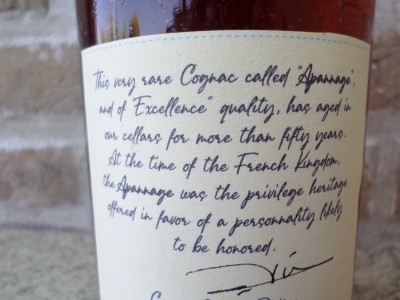 This very rare Cognac called "Apannage",
and of Excellence" quality, has aged in
our cellars for more than fifty years.
At the time of the French Kingdom,
the Apannage was the privilege heritage
offered in favor of a personnality likely
to be honored.